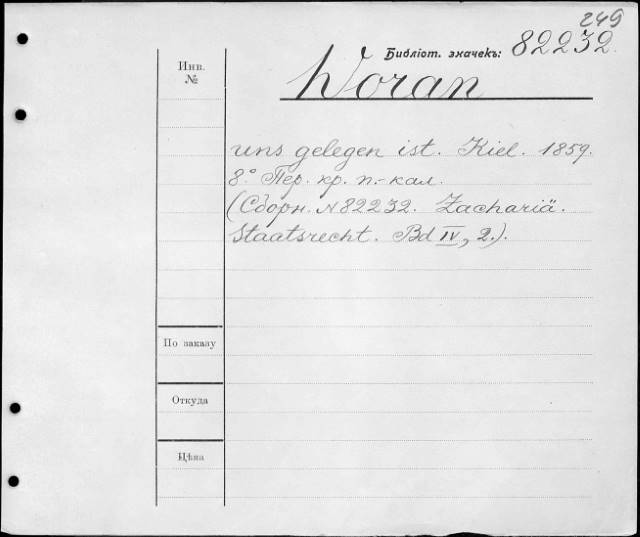 249
Библіот. значекъ: 82232.
Инв.
№
Woran
uns gelegen ist. Kiel. 1859.
8.° Пер. кр. п.-кал.
(Сборн. N 82232. Zachariä.
Staatsrecht. Bd IV, 2.).
По заказу
Откуда
Цѣна